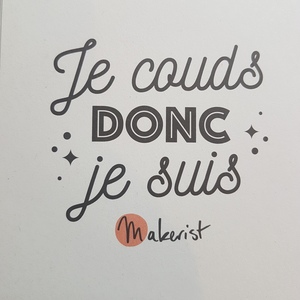 Je couds
DONC
je suis
Makerist